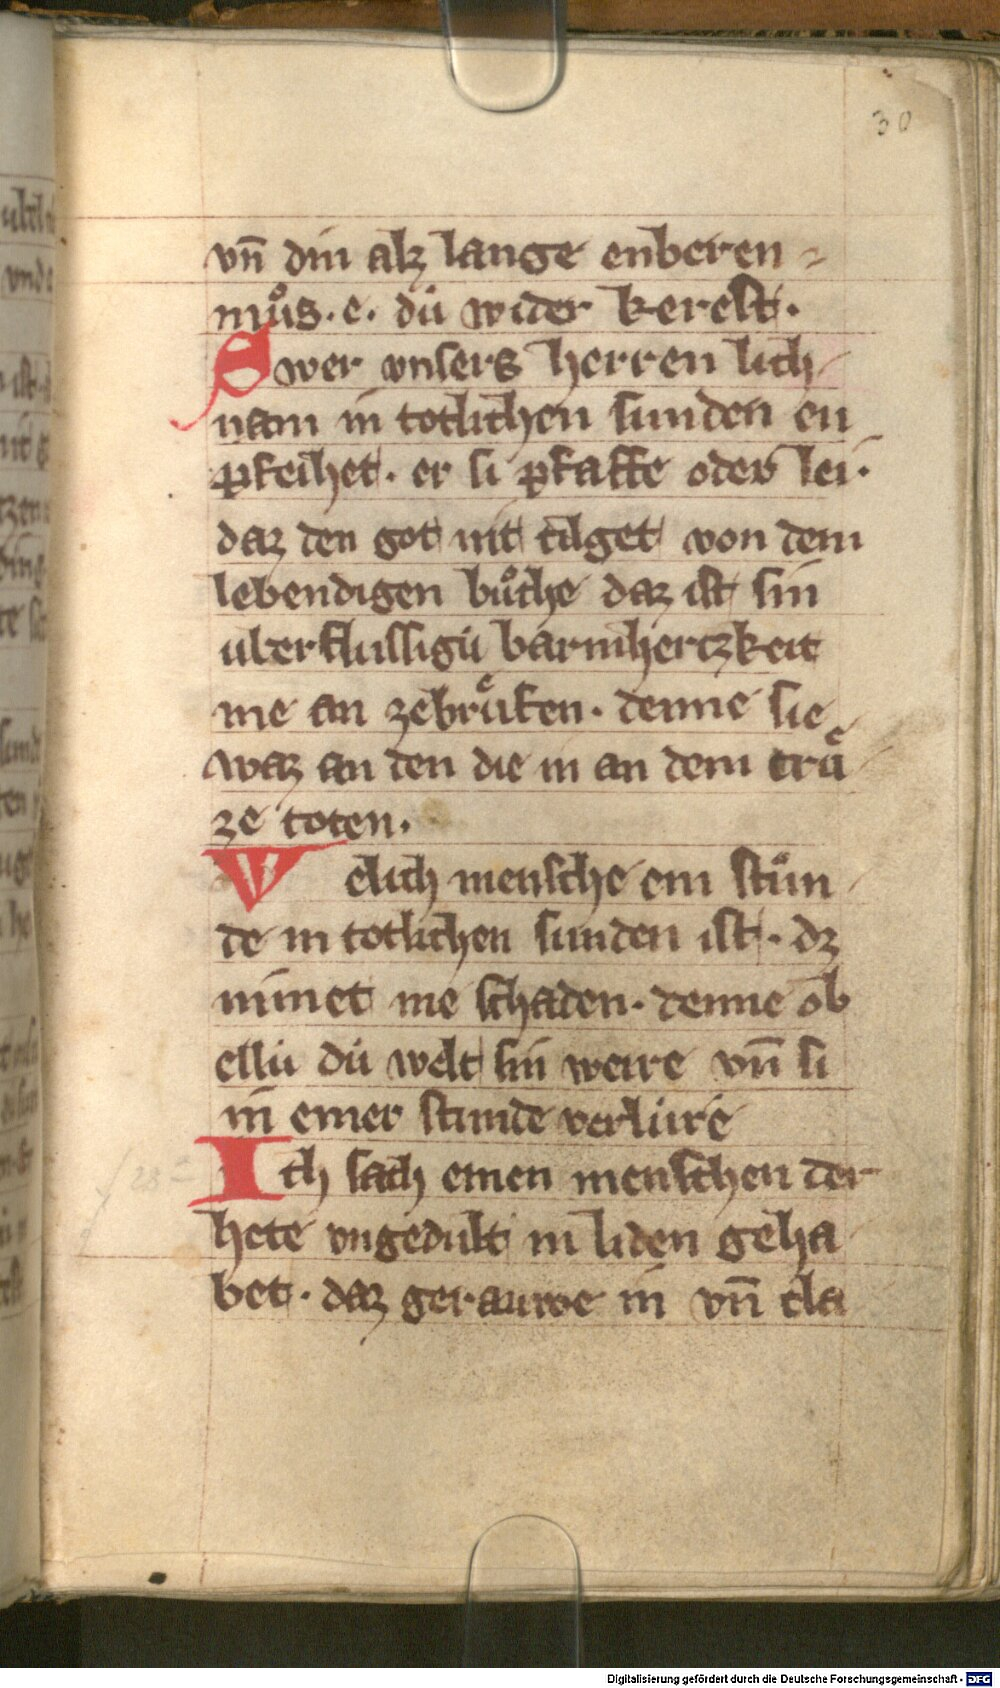 30
vn̄ din alz lange enberen
můs. e. dü wider kerest.
Swer vnsers herren lich
nam in totlichen sunden en
pfeihet. er si pfaffe oder lei.
daz den got nit tilget von dem
lebendigen bůche daz ist sin
uberflussigü barmhertzkeit
me an zebrůken. denne sie
waz an den die in an dem crůͤ
ze toten.
Welich mensche ein stůn
de in totlichen sunden ist. dz
nimet me schaden. denne ob
ellü dü welt sin weire vn̄ si
in einer stunde verlüre
Ich sach einen menschen der
hete vngedult in liden geha
bet. daz gerauwe in vn̄ cla
Digitalisierung gefördert durch die Deutsche Forschungsgemeinschaft - DFG